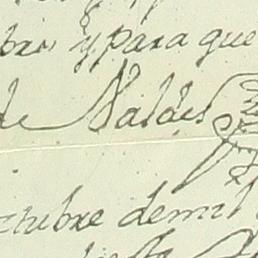 bro, y para que
de Naldes
ctubre de mil